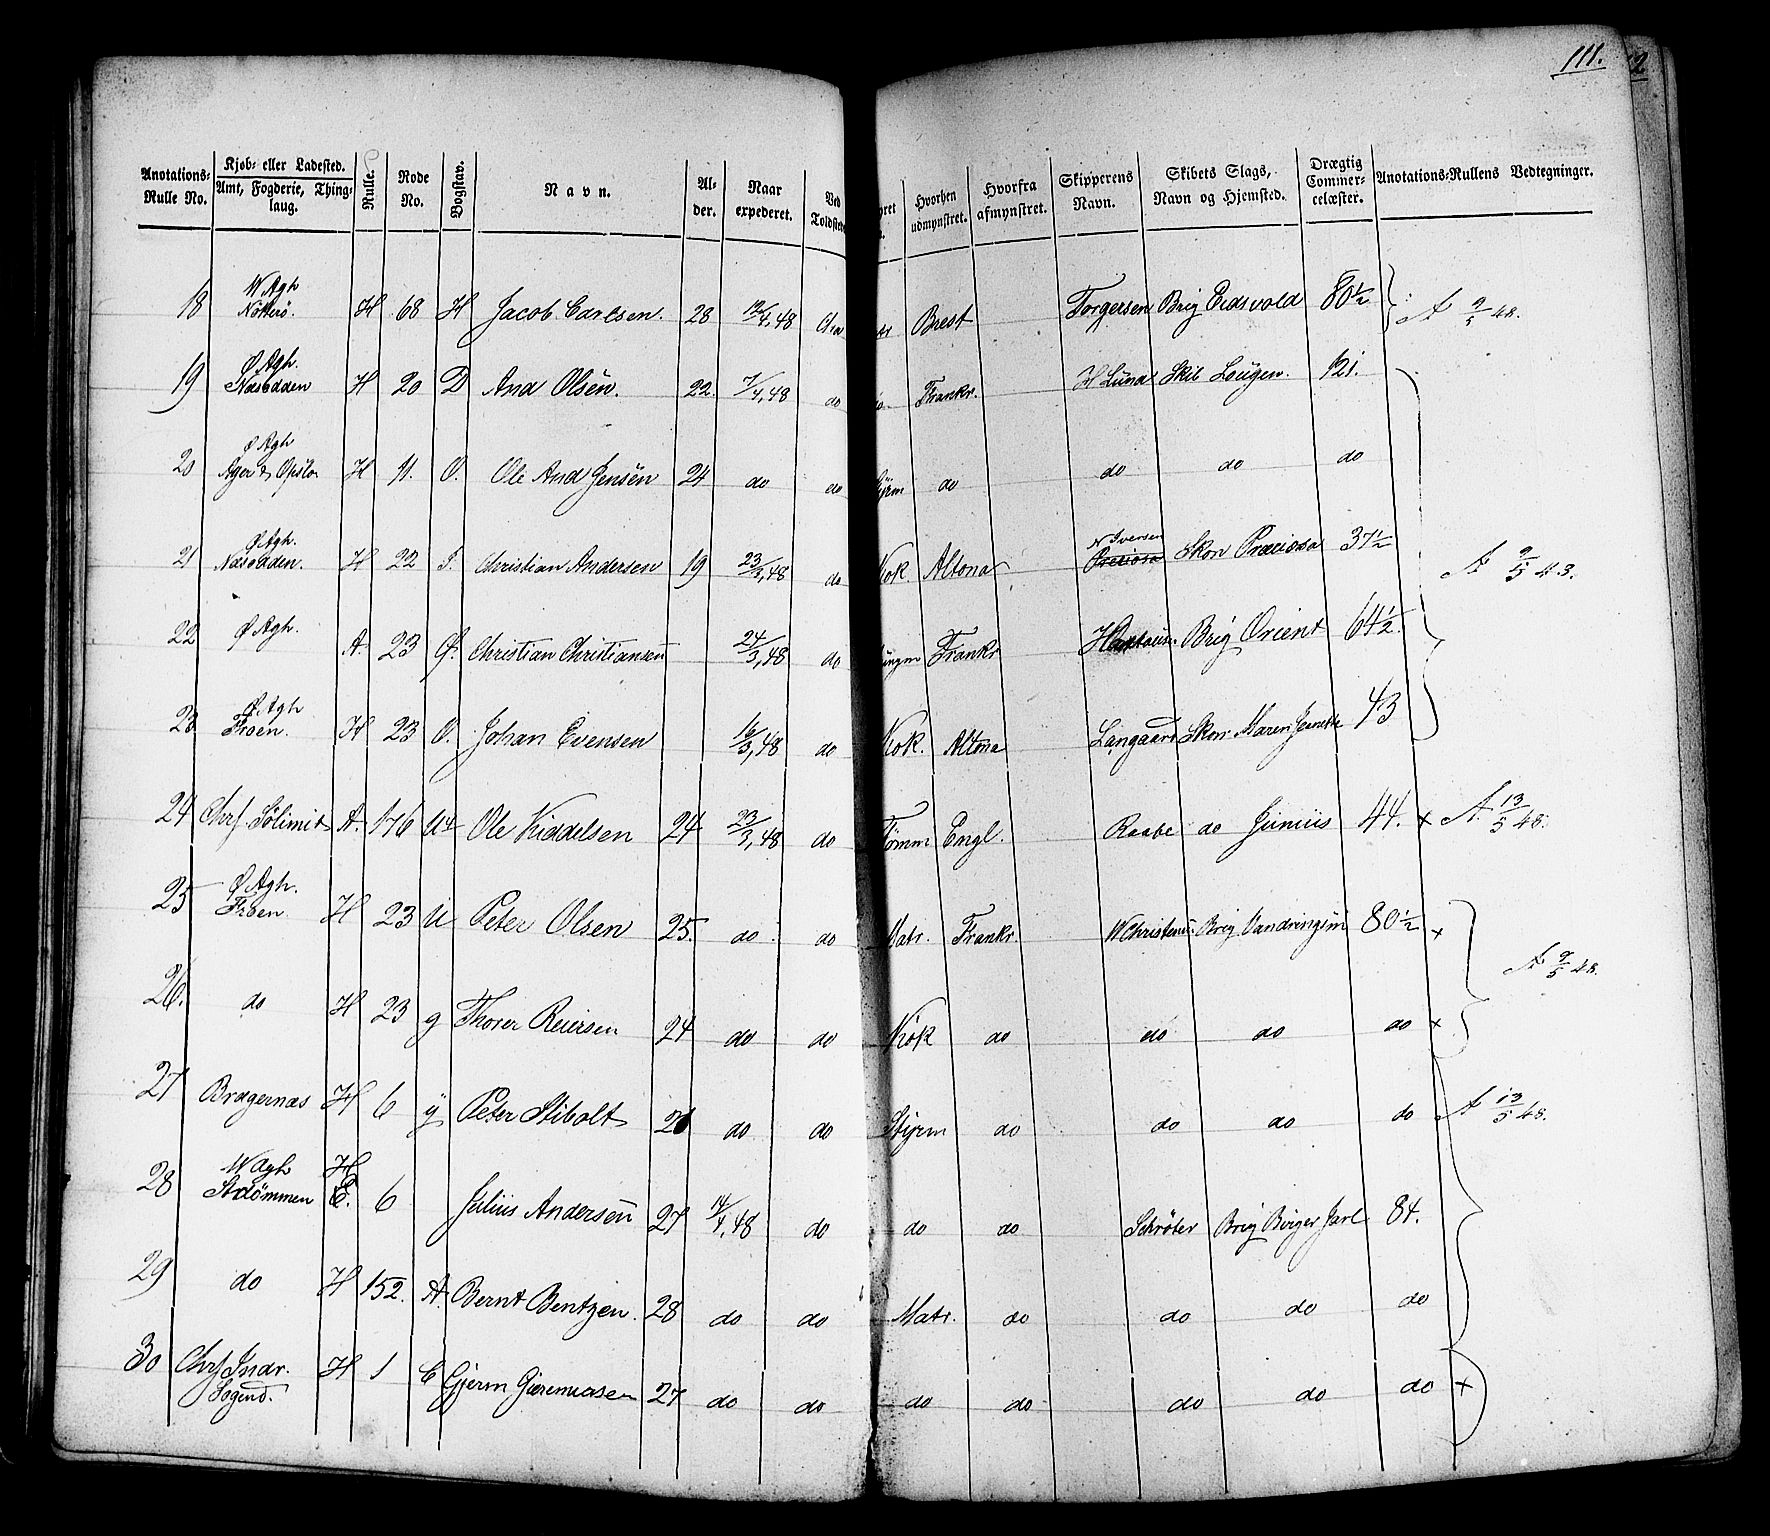 111.
Anotations-Rulle No. Kjøb- eller Ladested. Amt, Fogderie, Thinglaug. Rulle. Node No. Bogstav. Navn. Alder. Naar expederet. Ved Toldsted Hvorhen udmynstret. Hvorfra afmynstret. Skipperens Navn. Skibets Slags, Navn og Hjemsted. Drægtig Commercelæster. Anotations-Rullens Vedtegninger.
18 W Agh Nötterö. H 68 H Jacob Carlsen. 28 12/4, 48 Brest Torgersen Brig Eidsvold 80½ A 9/5 48.
19 Ø Agh. Næsodden H 20 D And Olsen. 22. 7/4, 48 do Frankr. H Lund Skib Lougen. 121.
20 Ø Agh Ager & Opslo H 11. O. Ole And Jensen 24 do do Styrm do do do do
21 Ø Agh. Næsodden. H 22 Christian Andersen 19 23/3, 48 do Kok. Altona N Iversen Preciosa Skon Preciosa 37½ A 9/5 48.
22 Ø Agh. A. 23 Christian Christiansen 24/3, 48 do Frankr Brig Orient 64½.
23 Ø Agh Froen. H 23 O. Johan Evensen 16/3, 48 do Kok. Altona Langaard Skon Maren Jeanette 43
24 Chrf A. 176 Ole Kiddelsen 24 23/3, 48 do Tömm Engl. Raabe do Junius 44. x A. 13/5 48.
25 Ø Agh. Froen. H 23 U Peter Olsen 25. do do Matr. Frankr. W Christens. Brig Vandringsm 80½ x
26. do H 23 g Thorer Reiersen 24 do do Kok do do do do x A 9/5 48.
27 Bragernæs H 6 y Peter Stibolt do do Styrm do do do do A 13/5 48.
28 W Agh Strömmen H E. 6 Julius Andersen 27 14/4, 48 do do do Schröter Brig Birger Jarl 84.
29 do H 152. A. Bernt Bentzen. 28 do do Matr. do do do do
30 Chrf Indr. Sogend. H 1 C Gjerm Gjeremiasen 27 do do do do do do do x